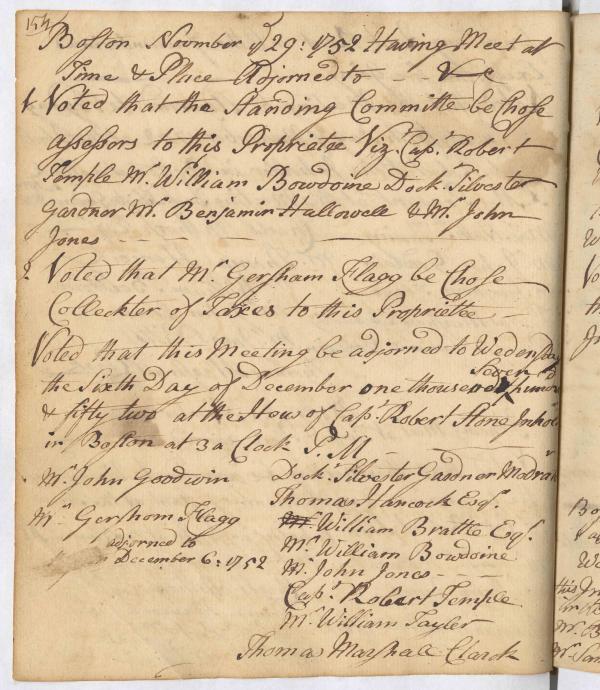 154
Boston Novmber ye 29: 1752 Having Meet at
Time & Place Adjorned to - - &c
1 Voted that the Standing Committe be Chose
assessors to this Proprietee Viz. Capt. Robert
Temple Mr. William Bowdoine Dock. Silvester
Gardner Mr. Benjamin Hallowell & Mr. John
Jones
2 Voted that Mr. Gersham Flagg be Chose
Colleckter of Taxes to this Proprietee
Voted that this Meeting be adjorned to Wedensday
the Sixth Day of December one thousend Seven hund
& fifty two at the Hous of Capt. Robert Stone
in Boston at 3 a Clock P.M
Mr. John Goodwin
Mr. Gershom Flagg
adjorned to
December 6: 1752
Dock. Silvester Gardner Modra
Thomas Hancock Esqr.
William Brattle Esqr.
Mr. William Bowdoine
Mr. John Jones
Capt. Robert Temple
Mr. William Tayler
Thomas Marshall Clarck